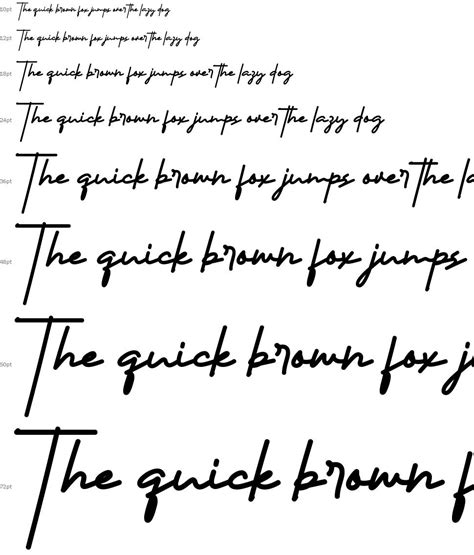 10pt The quick brown fox jumps over the lazy dog
12pt The quick brown fox jumps over the lazy dog
18pt The quick brown fox jumps over the lazy dog
24pt The quick brown fox jumps over the lazy dog
36pt The quick brown fox jumps over the la
48pt The quick brown fox jumps
60pt The quick brown fox j
72pt The quick brown f